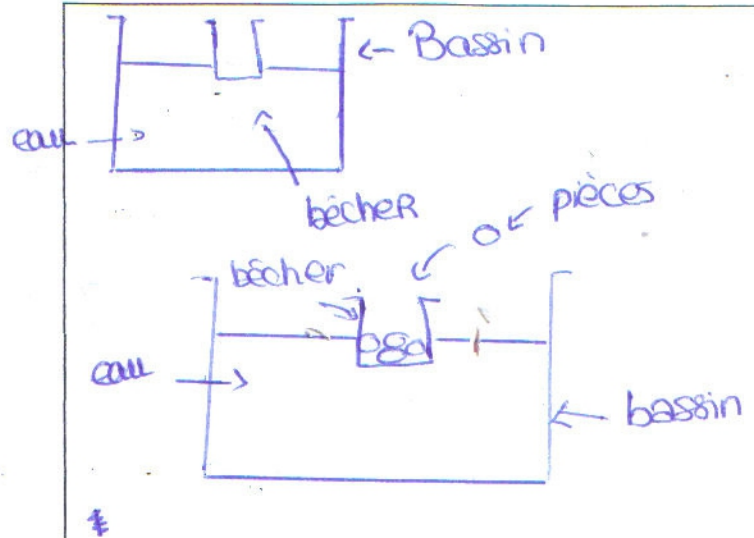 Bassin
eau
bécheR
pièces
bécher
eau
bassin